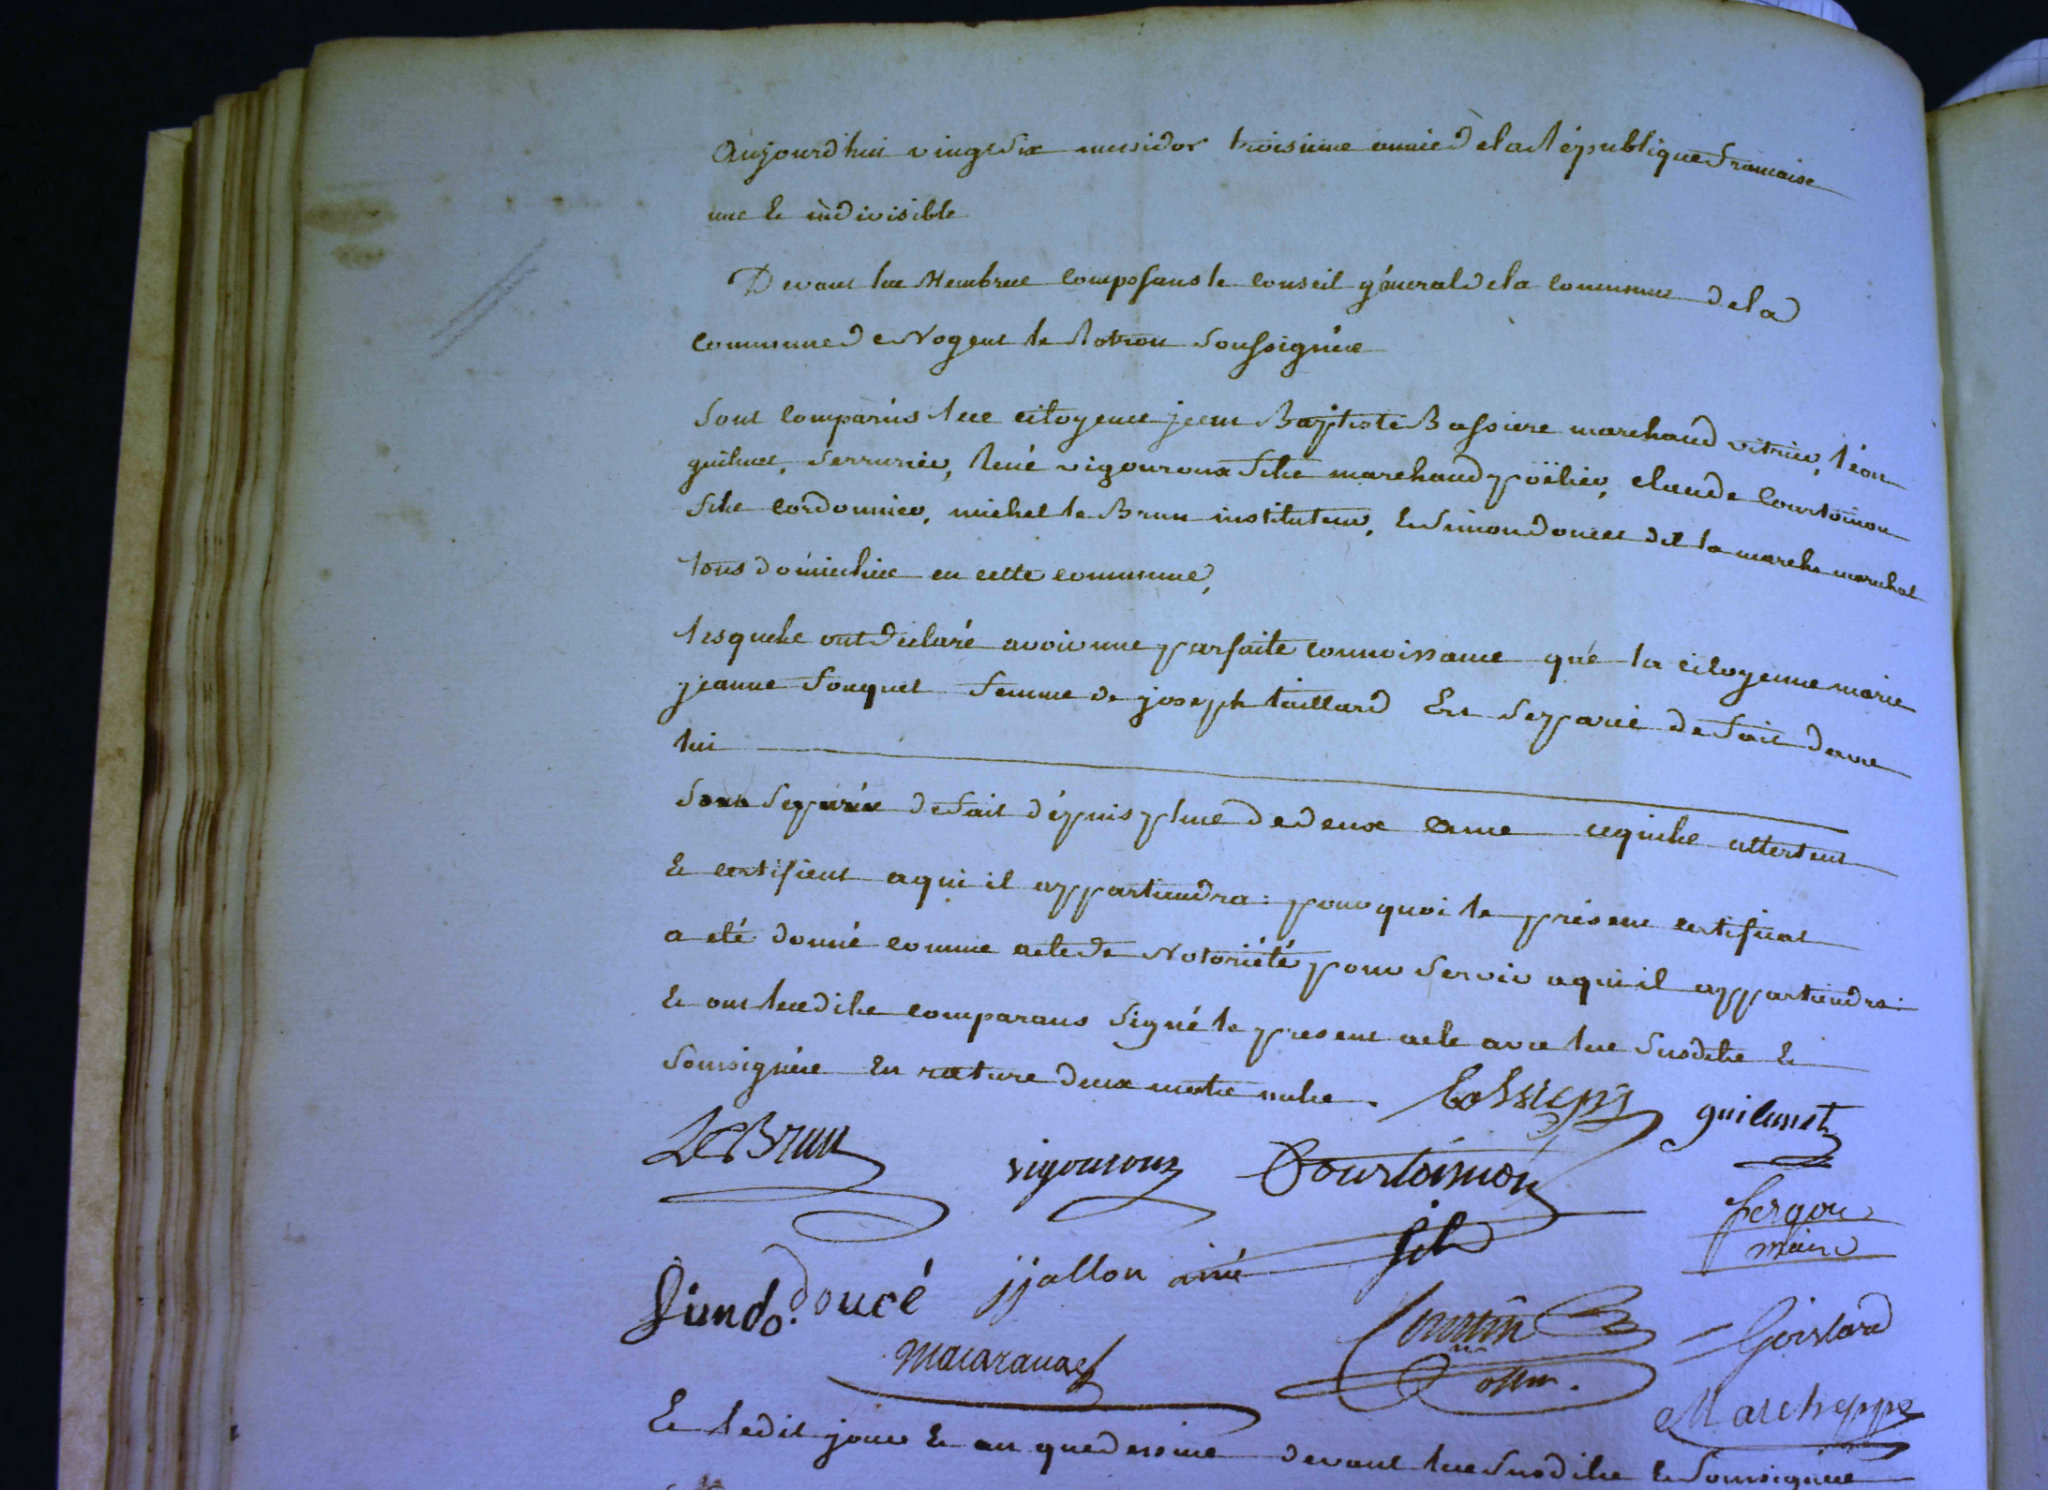 Aujourdhui vingt six messidor troisieme année dela République francaise
une et indivisible
Devant les Membres composans le conseil général dela commune dela
commune de Nogent le Rotrou soussignés
Sont comparus les citoyens jean Baptiste Bassiere marchand vitrier, léon
guilmet, serrurier, René vigouroux fils marchand poëlier, claude Courtoinon
fils cordonnier, michel le Brun instituteur, et Simon doucet dit la marche marechal
tous domiciliés en cette commune,
lesquels ont déclaré avoir une parfaite connoissance que la citoyenne marie
jeanne fouquet femme de joseph taillard Est separée de fait davec
lui
Sont Separés de fait dépuis plus de deux années cequ'ils attestent
et certifient aqui il appartiendra: pourquoi le présent certificat
a été donné comme acte de Notoriété pour servir aqui il appartiendra.
et ont lesdits comparans signé le present acte avec les susdits et
soussignés En rature deux mots nuls.
guilmet
LeBrun vigouroux Courtoinon
fils
fergon
maire
doucé jjallon ainé
Goislard
Courtin
off m.
Marcheppe
Et ledit jour et an quedessus devant les susdits et soussignés